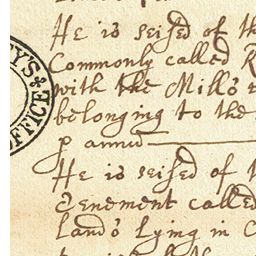 He is seised of th
Commonly called R
with the Mills
belonging to the
p annū
He is seised of
Tenement called
lands lying in C
Y'S OFFICE